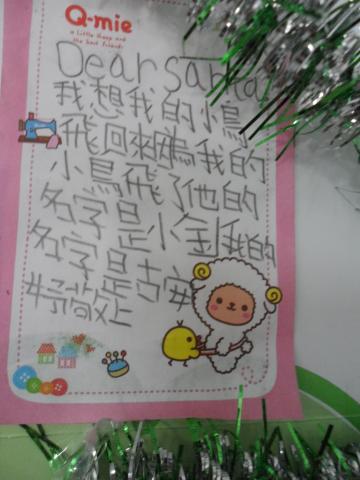 Q-mie
a little sheep and
the best friends
Dear santa
我想我的小鳥
飛回來我的
小鳥飛了他的
名字是小金我的
名字是古安
敬上